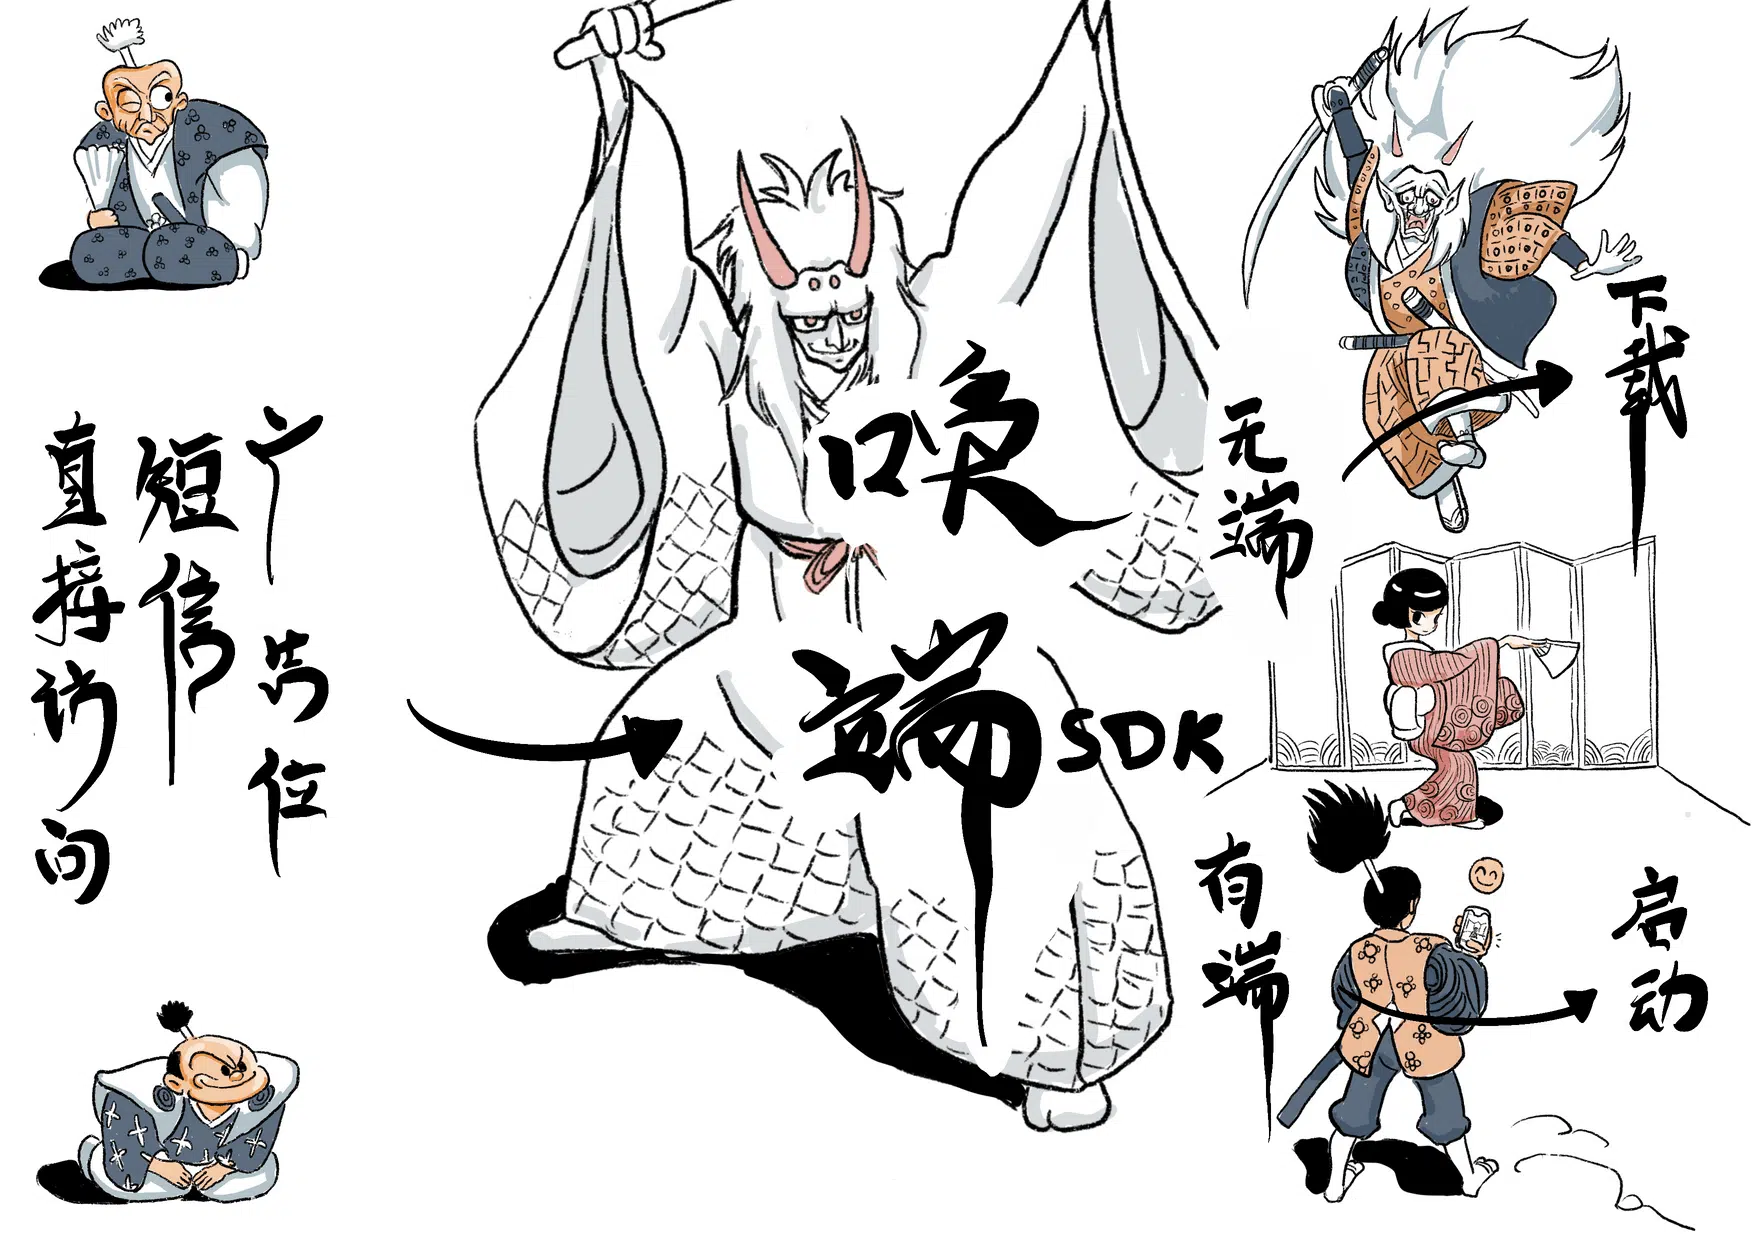 广告位
短信
直接访问
唤端SDK
无端
下载
有端
启动